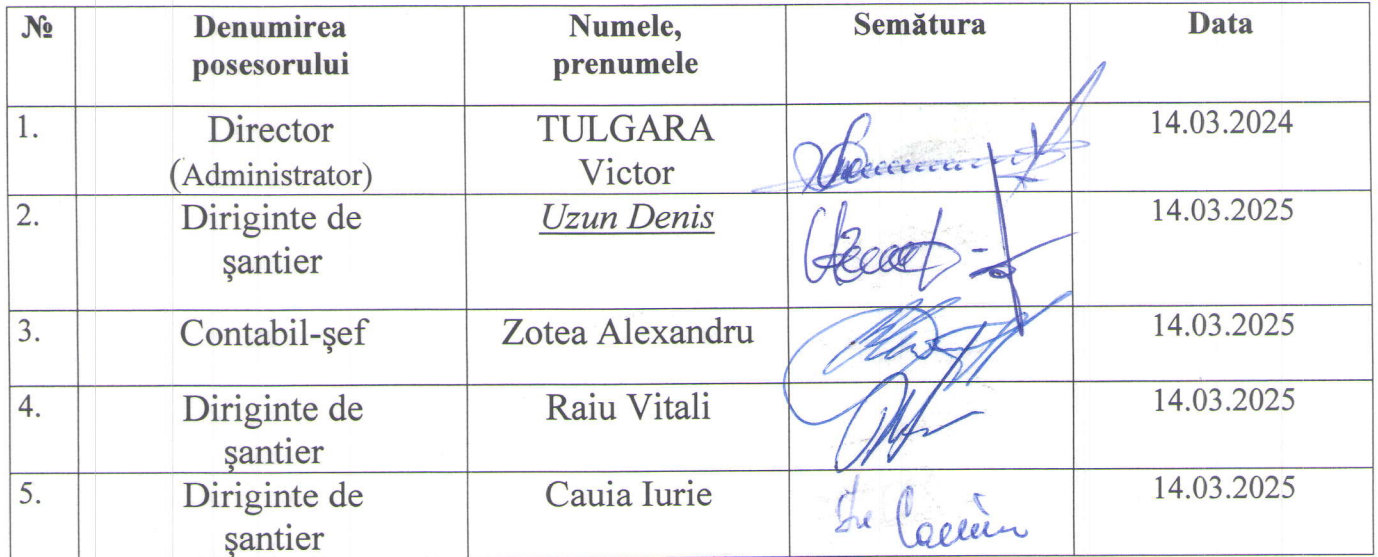 № Denumirea posesorului Numele, prenumele Semătura Data
1. Director (Administrator) TULGARA Victor 14.03.2024
2. Diriginte de șantier Uzun Denis 14.03.2025
3. Contabil-șef Zotea Alexandru 14.03.2025
4. Diriginte de șantier Raiu Vitali 14.03.2025
5. Diriginte de șantier Cauia Iurie 14.03.2025